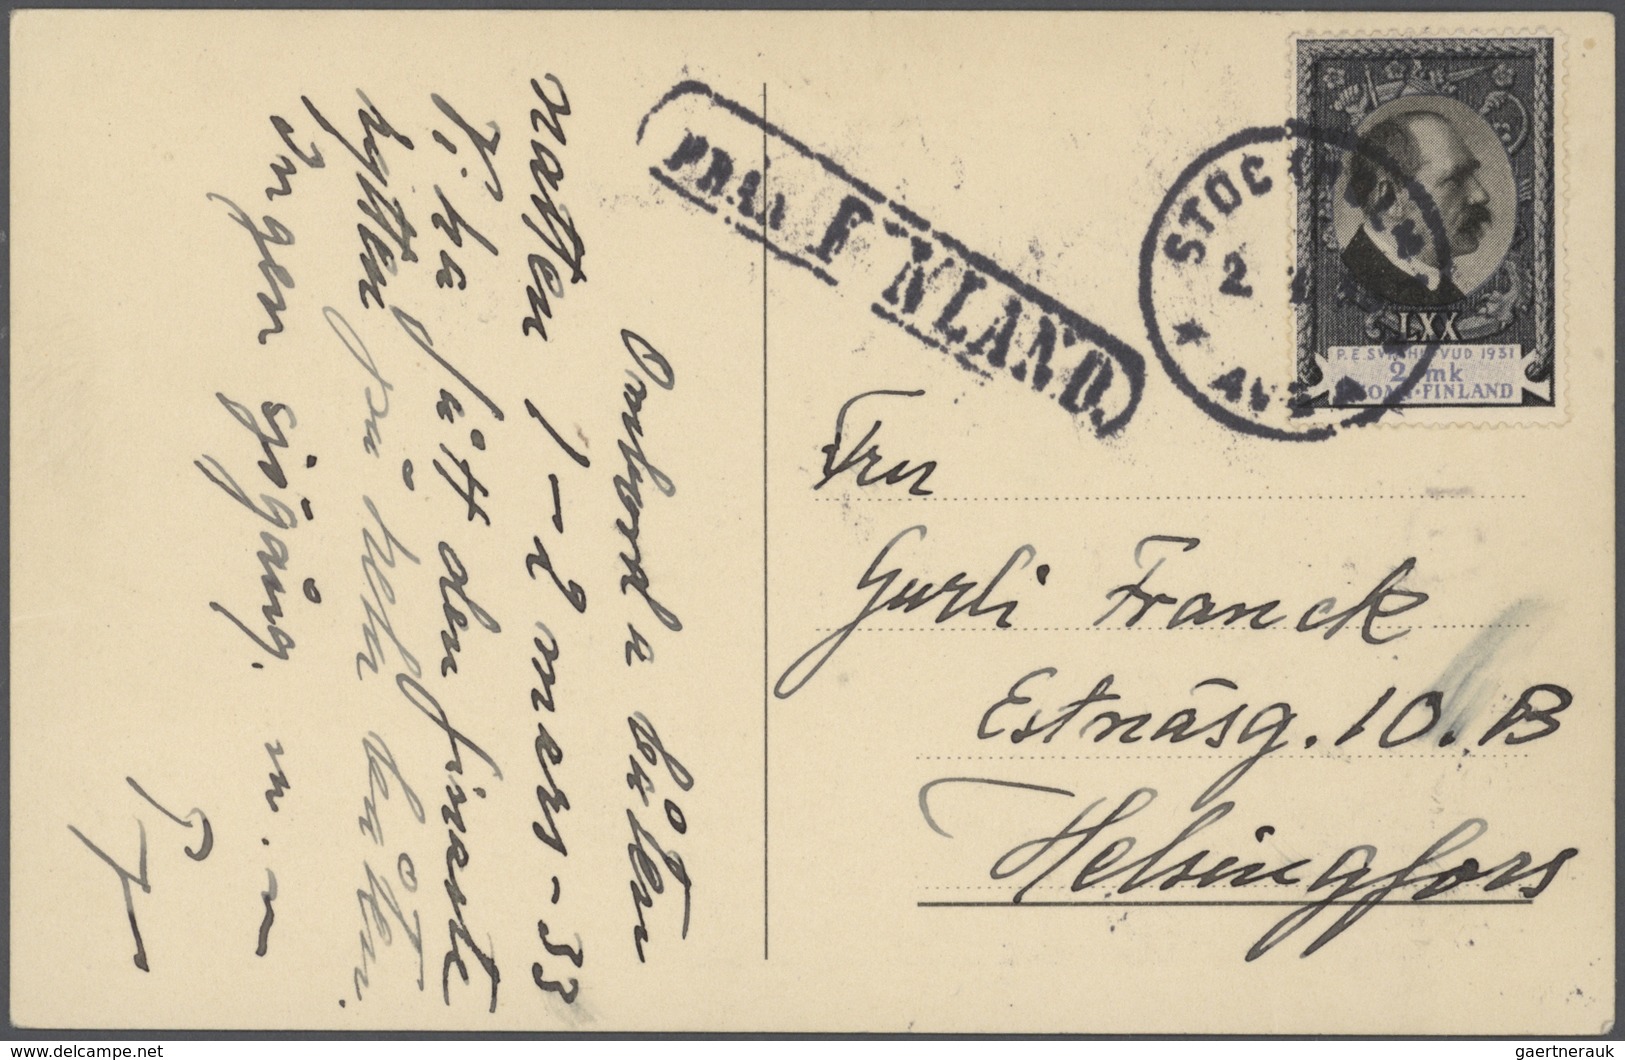 Ombord å båten
natten 1–2 mars–33
Vi ha fått den finaste
hytten på hela båten.
Ingen sjögång. m. m
FRÅN FINLAND.
STOCKHOLM
2
AVG
LXX
P.E. SVINHUFVUD 1931
2 mk
SUOMI·FINLAND
Fru
Gurli Franck
Estnäsg. 10. B
Helsingfors
delcampe.net
gaertnerauk